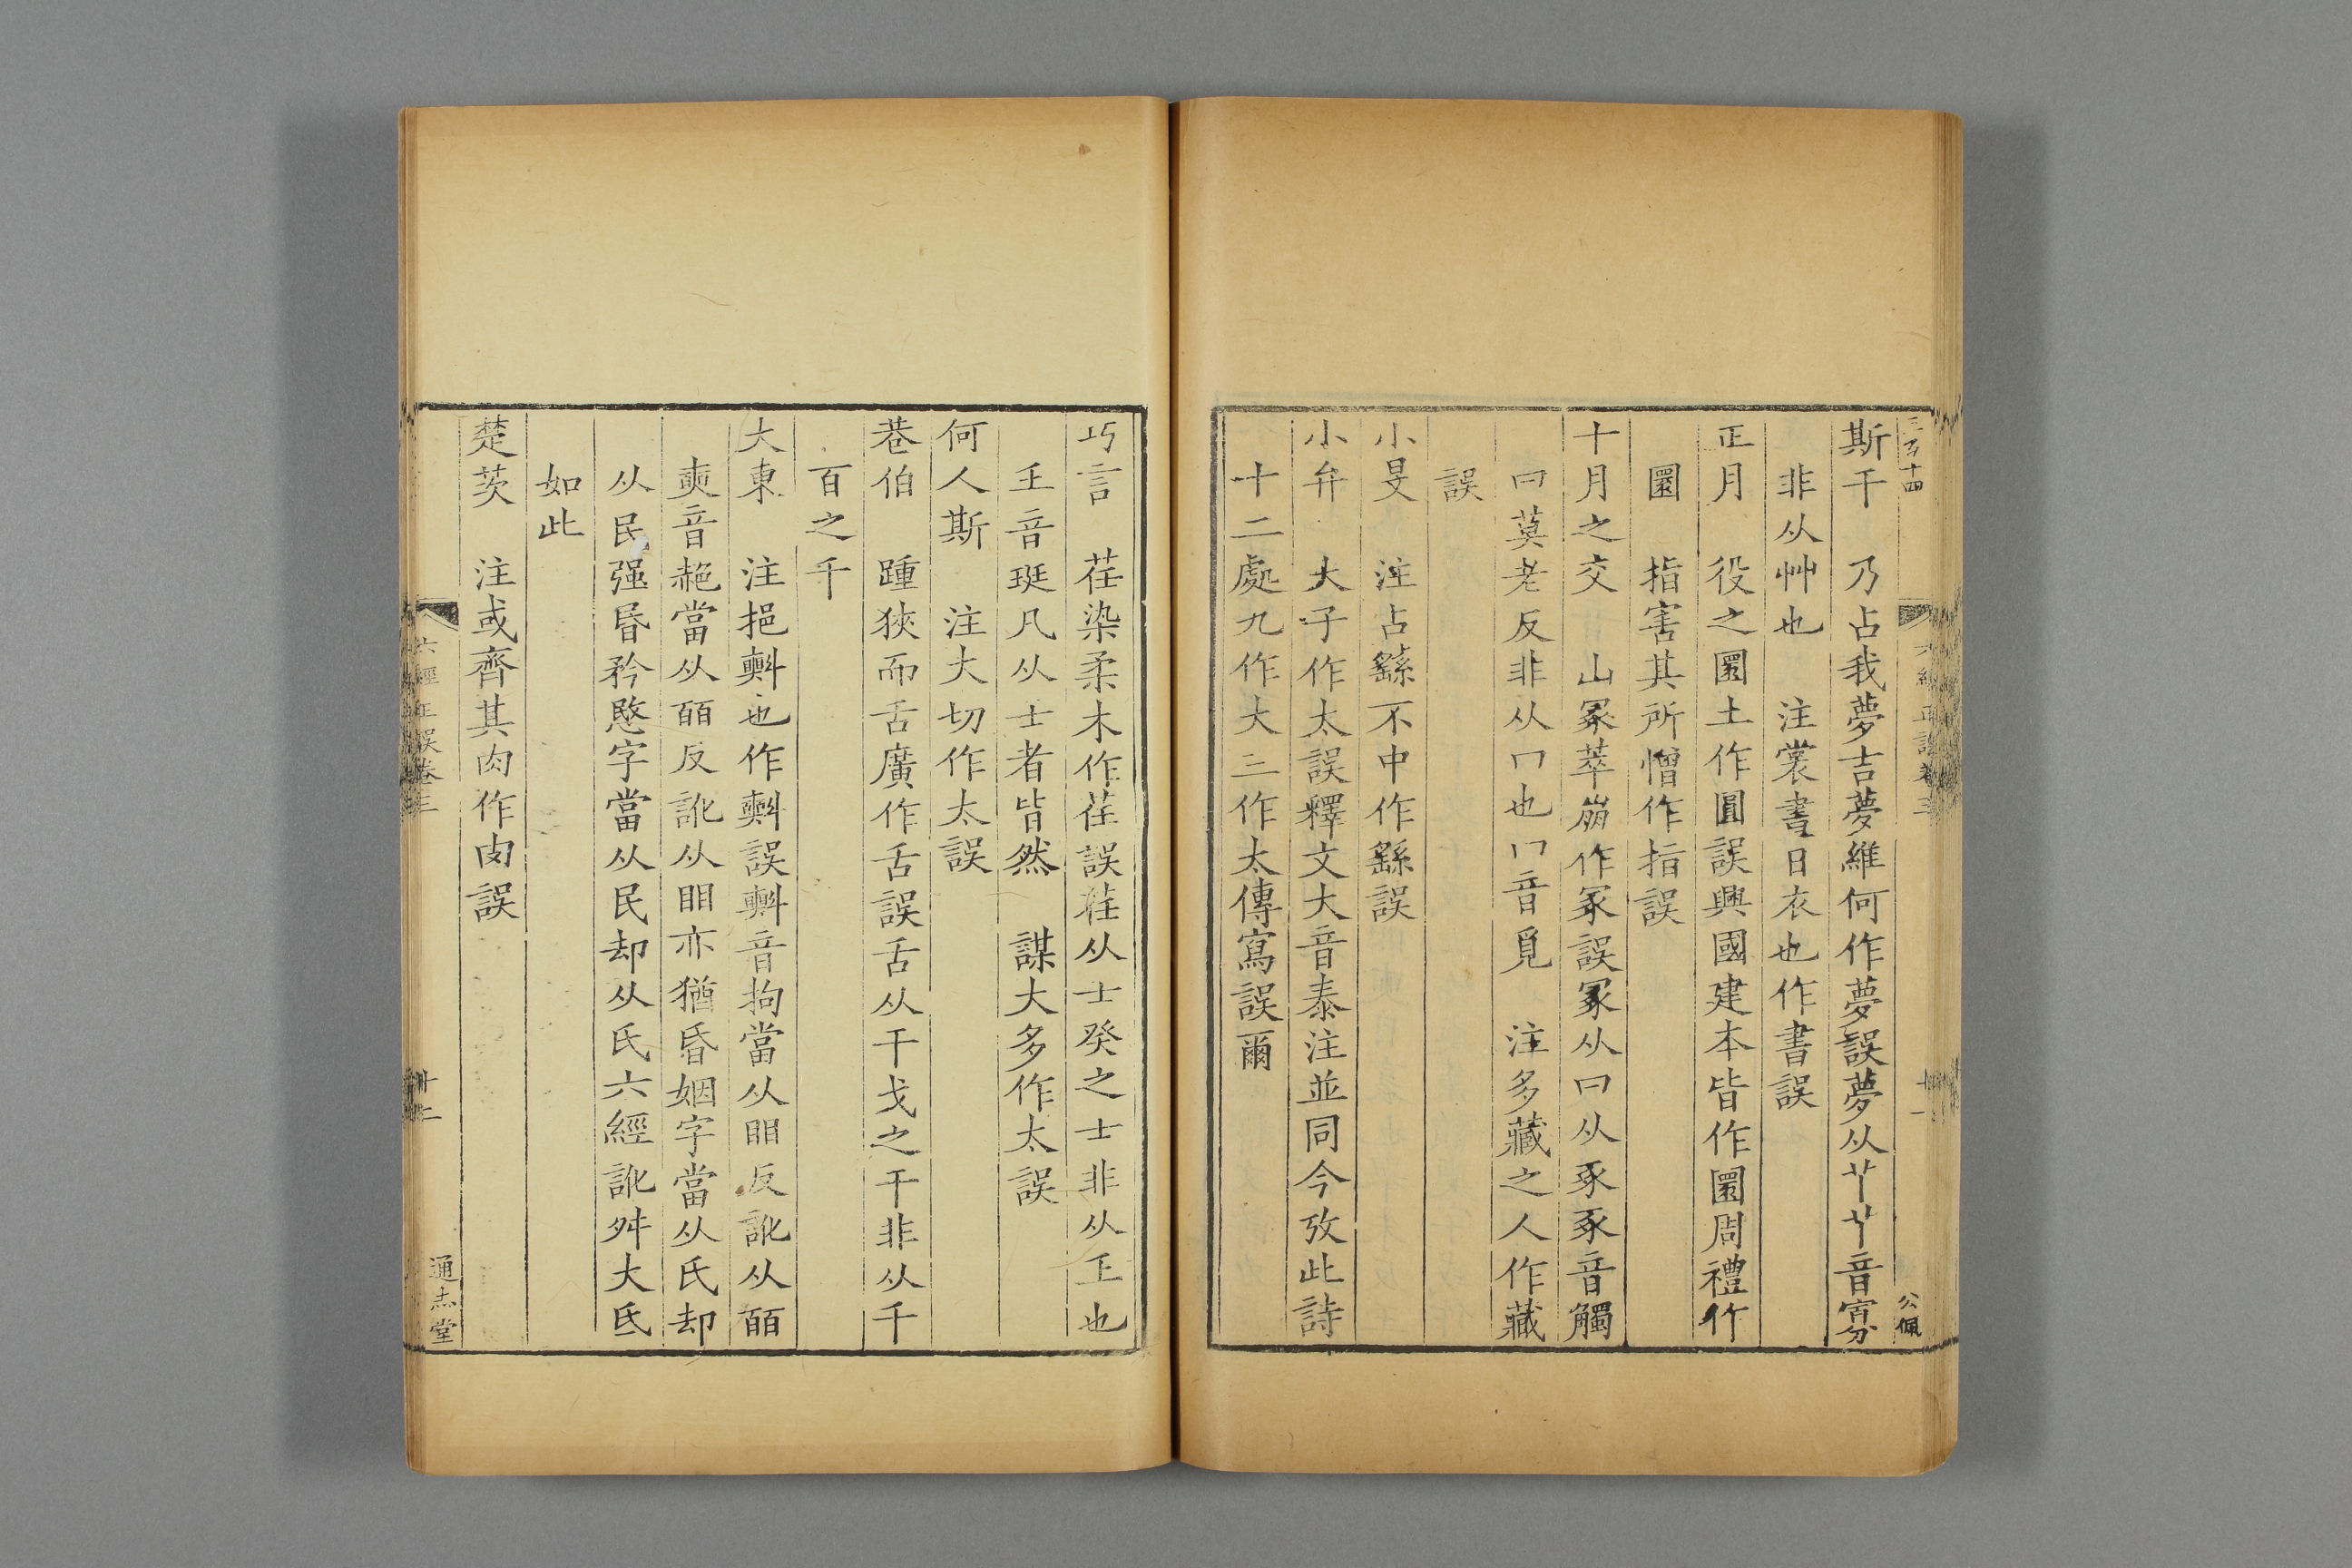 三百十四
公佩
斯干　乃占我夢吉夢維何作夢誤夢从𦫳𦫳音寡
非从艸也　注裳晝日衣也作書誤
正月　役之圜土作圓誤興國建本皆作圜周禮作
圜　指害其所憎作指誤
十月之交　山冢萃崩作冡誤冢从冖从豖豖音觸
冃莫老反非从冖也冖音覓　注多藏之人作藏
誤
小旻　注占繇不中作繇誤
小弁　大子作太誤釋文大音泰注並同今攷此詩
十二處九作大三作太傳寫誤爾
六經正誤卷三
十一
巧言　荏染柔木作荏誤荏从士癸之士非从𡈼也
𡈼音珽凡从士者皆然　謀大多作太誤
何人斯　注大切作太誤
巷伯　踵狹而舌廣作舌誤舌从干戈之干非从千
百之千
大東　注挹㪺也作㪺誤㪺音拘當从䀠反訛从皕
奭音赩當从皕反訛从䀠亦猶昏姻字當从氏却
从民强昬矜愍字當从民却从氏六經訛舛大氐
如此
楚茨　注或齊其肉作肉誤
六經正誤卷三
十二
通志堂